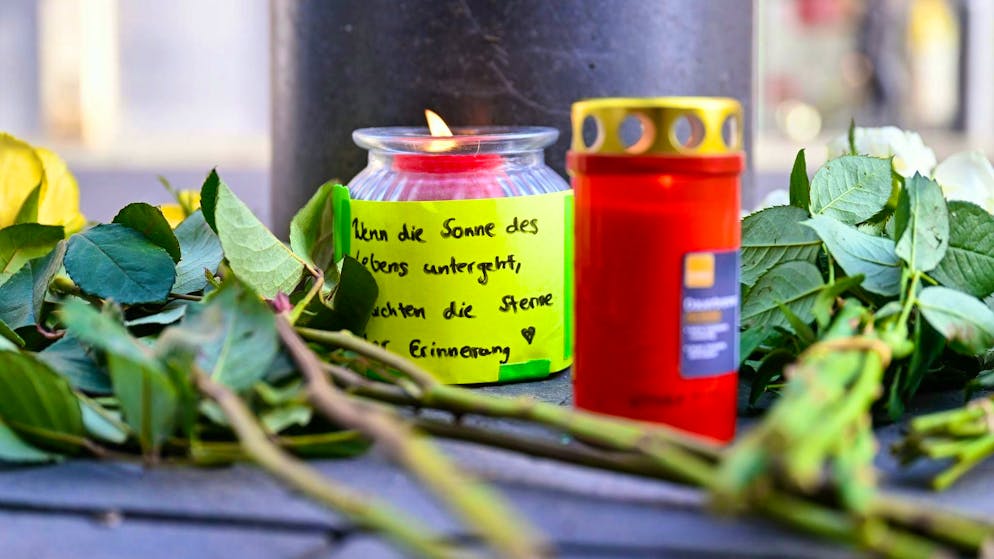 Wenn die Sonne des
Lebens untergeht,
die Sterne
Erinnerung